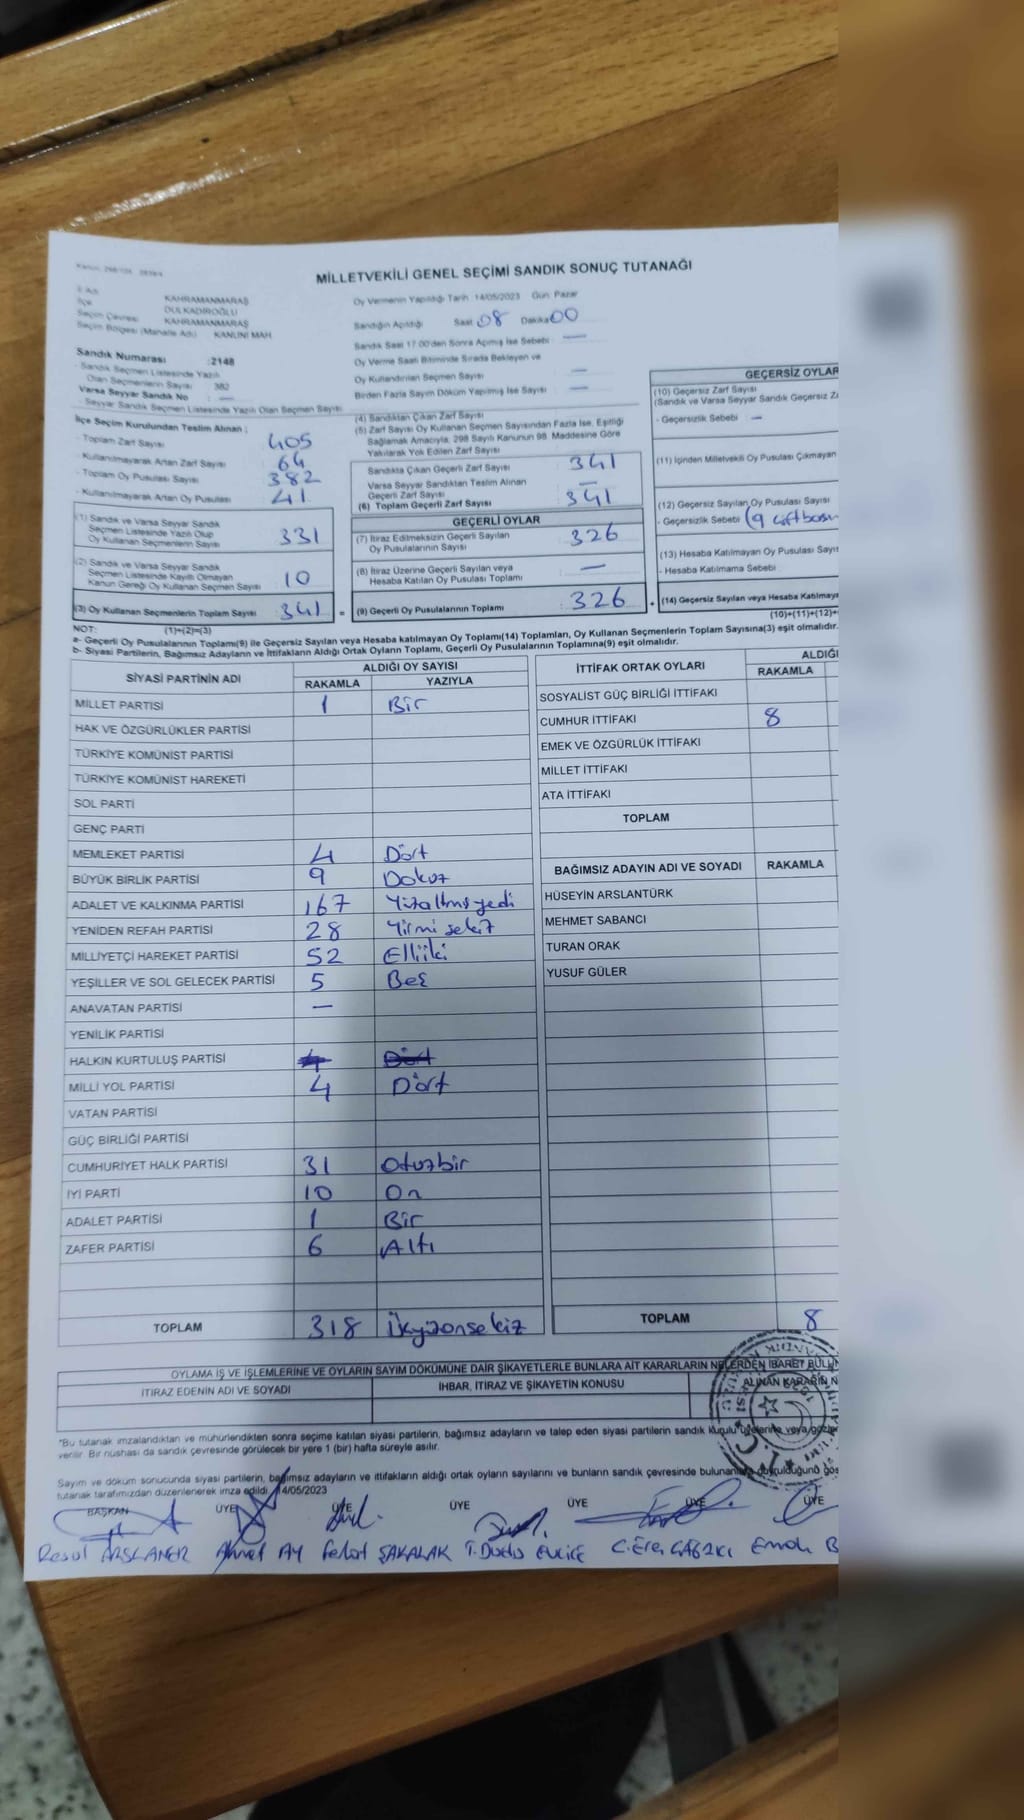 MİLLETVEKİLİ GENEL SEÇİMİ SANDIK SONUÇ TUTANAĞI
İlçe
Seçim Çevresi
Seçim Bölgesi (Mahalle Adı)
KAHRAMANMARAŞ
DULKADİROĞLU
KAHRAMANMARAŞ
KANUNİ MAH
Sandık Numarası :2148
- Sandık Seçmen Listesinde Yazılı
Olan Seçmenlerin Sayısı 382
Varsa Seyyar Sandık No —
- Seyyar Sandık Seçmen Listesinde Yazılı Olan Seçmen Sayısı
İlçe Seçim Kurulundan Teslim Alınan ;
- Toplam Zarf Sayısı 405
- Kullanılmayarak Artan Zarf Sayısı 64
- Toplam Oy Pusulası Sayısı 382
- Kullanılmayarak Artan Oy Pusulası 41
(1) Sandık ve Varsa Seyyar Sandık
Seçmen Listesinde Yazılı Olup
Oy Kullanan Seçmenlerin Sayısı 331
(2) Sandık ve Varsa Seyyar Sandık
Seçmen Listesinde Kayıtlı Olmayan
Kanun Gereği Oy Kullanan Seçmen Sayısı 10
(3) Oy Kullanan Seçmenlerin Toplam Sayısı 341 =
Oy Vermenin Yapıldığı Tarih 14/05/2023 Gün: Pazar
Sandığın Açıldığı Saat 08 Dakika 00
Sandık Saat 17:00'den Sonra Açılmış İse Sebebi —
Oy Verme Saati Bitiminde Sırada Bekleyen ve
Oy Kullandırılan Seçmen Sayısı —
Birden Fazla Sayım Döküm Yapılmış İse Sayısı —
(4) Sandıktan Çıkan Zarf Sayısı
(5) Zarf Sayısı Oy Kullanan Seçmen Sayısından Fazla İse, Eşitliği
Sağlamak Amacıyla, 298 Sayılı Kanunun 98. Maddesine Göre
Yakılarak Yok Edilen Zarf Sayısı
Sandıkta Çıkan Geçerli Zarf Sayısı 341
Varsa Seyyar Sandıktan Teslim Alınan
Geçerli Zarf Sayısı —
(6) Toplam Geçerli Zarf Sayısı 341
GEÇERLİ OYLAR
(7) İtiraz Edilmeksizin Geçerli Sayılan
Oy Pusulalarının Sayısı 326
(8) İtiraz Üzerine Geçerli Sayılan veya
Hesaba Katılan Oy Pusulası Toplamı —
(9) Geçerli Oy Pusulalarının Toplamı 326 +
GEÇERSİZ OYLAR
(10) Geçersiz Zarf Sayısı
(Sandık ve Varsa Seyyar Sandık Geçersiz
- Geçersizlik Sebebi —
(11) İçinden Milletvekili Oy Pusulası Çıkmayan
(12) Geçersiz Sayılan Oy Pusulası Sayısı
- Geçersizlik Sebebi (9 çift
(13) Hesaba Katılmayan Oy Pusulası
- Hesaba Katılmama Sebebi
(14) Geçersiz Sayılan veya Hesaba
(10)+(11)+(12)+
NOT: (1)+(2)=(3)
a- Geçerli Oy Pusulalarının Toplamı(9) ile Geçersiz Sayılan veya Hesaba katılmayan Oy Toplamı(14) Toplamları, Oy Kullanan Seçmenlerin Toplam Sayısına(3) eşit olmalıdır.
b- Siyasi Partilerin, Bağımsız Adayların ve İttifakların Aldığı Ortak Oyların Toplamı, Geçerli Oy Pusulalarının Toplamına(9) eşit olmalıdır.
SİYASİ PARTİNİN ADI ALDIĞI OY SAYISI
RAKAMLA YAZIYLA
MİLLET PARTİSİ 1 Bir
HAK VE ÖZGÜRLÜKLER PARTİSİ
TÜRKİYE KOMÜNİST PARTİSİ
TÜRKİYE KOMÜNİST HAREKETİ
SOL PARTİ
GENÇ PARTİ
MEMLEKET PARTİSİ 4 Dört
BÜYÜK BİRLİK PARTİSİ 9 Dokuz
ADALET VE KALKINMA PARTİSİ 167 Yüzaltmışyedi
YENİDEN REFAH PARTİSİ 28 Yirmi sekiz
MİLLİYETÇİ HAREKET PARTİSİ 52 Elliiki
YEŞİLLER VE SOL GELECEK PARTİSİ 5 Beş
ANAVATAN PARTİSİ —
YENİLİK PARTİSİ
HALKIN KURTULUŞ PARTİSİ 4 Dört
MİLLİ YOL PARTİSİ 4 Dört
VATAN PARTİSİ
GÜÇ BİRLİĞİ PARTİSİ
CUMHURİYET HALK PARTİSİ 31 Otuzbir
İYİ PARTİ 10 On
ADALET PARTİSİ 1 Bir
ZAFER PARTİSİ 6 Altı
TOPLAM 318 İkyüzonsekiz
İTTİFAK ORTAK OYLARI ALDIĞI
RAKAMLA
SOSYALİST GÜÇ BİRLİĞİ İTTİFAKI
CUMHUR İTTİFAKI 8
EMEK VE ÖZGÜRLÜK İTTİFAKI
MİLLET İTTİFAKI
ATA İTTİFAKI
TOPLAM
BAĞIMSIZ ADAYIN ADI VE SOYADI RAKAMLA
HÜSEYİN ARSLANTÜRK
MEHMET SABANCI
TURAN ORAK
YUSUF GÜLER
TOPLAM 8
OYLAMA İŞ VE İŞLEMLERİNE VE OYLARIN SAYIM DÖKÜMÜNE DAİR ŞİKAYETLERLE BUNLARA AİT KARARLARIN NELERDEN İBARET
İTİRAZ EDENİN ADI VE SOYADI İHBAR, İTİRAZ VE ŞİKAYETİN KONUSU ALINAN KARARIN
*Bu tutanak imzalandıktan ve mühürlendikten sonra seçime katılan siyasi partilerin, bağımsız adayların ve talep eden siyasi partilerin sandık kurulu üyelerine veya
verilir. Bir nüshası da sandık çevresinde görülecek bir yere 1 (bir) hafta süreyle asılır.
Sayım ve döküm sonucunda siyasi partilerin, bağımsız adayların ve ittifakların aldığı ortak oyların sayılarını ve bunların sandık çevresinde
tutanak tarafımızdan düzenlenerek imza edildi. 14/05/2023
BAŞKAN ÜYE ÜYE ÜYE ÜYE ÜYE ÜYE
Resul ARSLANER Ahmet AY Ferhat ŞAKALAK